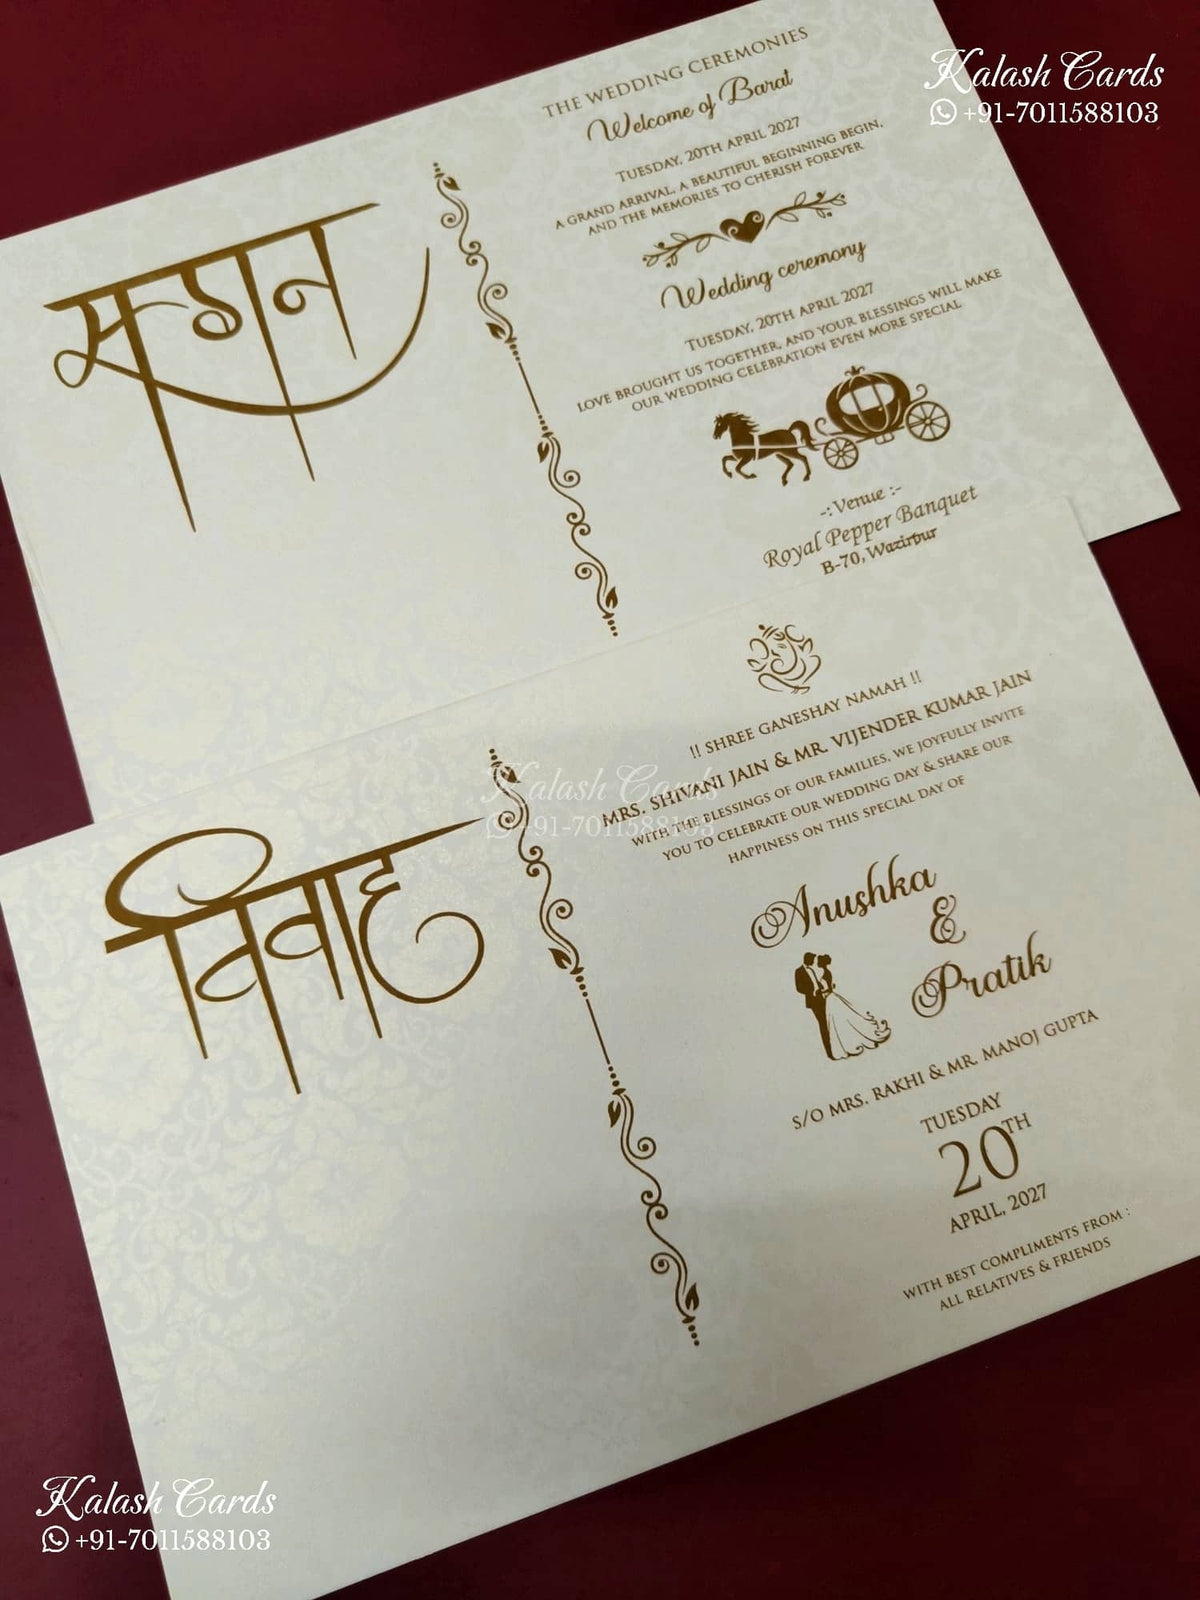 Kalash Cards
+91-7011588103
THE WEDDING CEREMONIES
Welcome of Barat
TUESDAY, 20TH APRIL 2027
A GRAND ARRIVAL, A BEAUTIFUL BEGINNING BEGIN,
AND THE MEMORIES TO CHERISH FOREVER
सगन
Wedding ceremony
TUESDAY, 20TH APRIL 2027
LOVE BROUGHT US TOGETHER, AND YOUR BLESSINGS WILL MAKE
OUR WEDDING CELEBRATION EVEN MORE SPECIAL
-: Venue :-
Royal Pepper Banquet
B-70, Wazirpur
!! SHREE GANESHAY NAMAH !!
MRS. SHIVANI JAIN & MR. VIJENDER KUMAR JAIN
WITH THE BLESSINGS OF OUR FAMILIES, WE JOYFULLY INVITE
YOU TO CELEBRATE OUR WEDDING DAY & SHARE OUR
HAPPINESS ON THIS SPECIAL DAY OF
Kalash Cards
+91-7011588103
विवाह
Anushka
&
Pratik
S/O MRS. RAKHI & MR. MANOJ GUPTA
TUESDAY
20TH
APRIL, 2027
WITH BEST COMPLIMENTS FROM :
ALL RELATIVES & FRIENDS
Kalash Cards
+91-7011588103